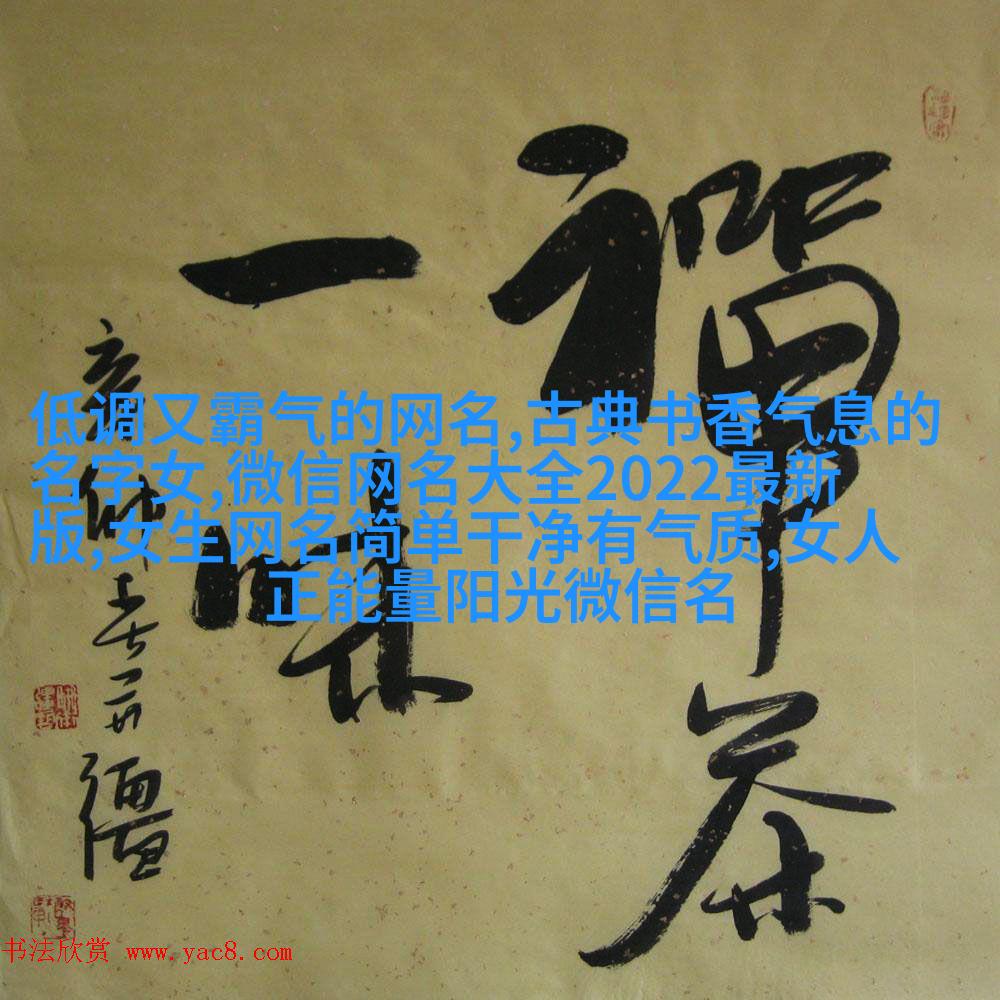 禅茶
一味
低调又霸气的网名,古典书香气息的
名字女,微信网名大全2022最新
版,女生网名简单干净有气质,女人
正能量阳光微信名
书法欣赏 www.yac8.com